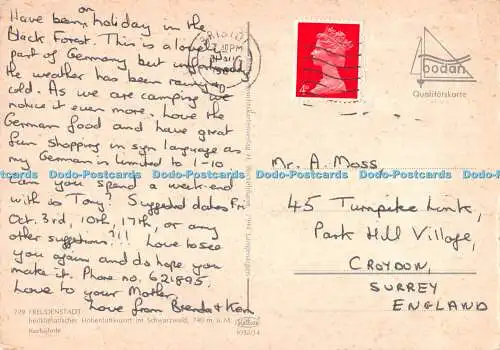 Have been on holiday in the
Black Forest. This is a lovely
part of Germany but unfortunately
the weather has been rainy &
cold. As we are camping we
notice it even more. Love the
German food and have great
fun shopping in sign language as
my German is limited to 1-10
Can you spend a week-end
with us Tony? Suggested dates Fri
Oct. 3rd, 10th, 17th, or any
other suggestions?!!! Love to see
you again and do hope you
make it. Phone no. 621895.
Love to your Mother,
Love from Brenda & Ken
FREUDENSTADT
heilklimatischer Höhenluftkurort im Schwarzwald, 740 m. ü. M.
BRISTOL
PM
4D
bodan
Qualitätskarte
Mr. A. Moss,
45 Turnpike Link,
Park Hill Village,
CROYDON,
SURREY
ENGLAND
Dodo-Postcards Dodo-Postcards Dodo-Postcards Dodo-Postcards Dodo-Postcards